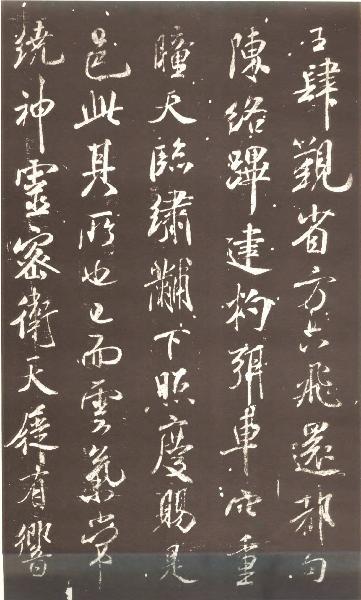 肆覲省方六飛還都句
陳絡蹕建杓弭車重
瞳天臨繡黼下照慶賜是
邑此其所也已而雲氣常
繞神靈密衛天徒有響